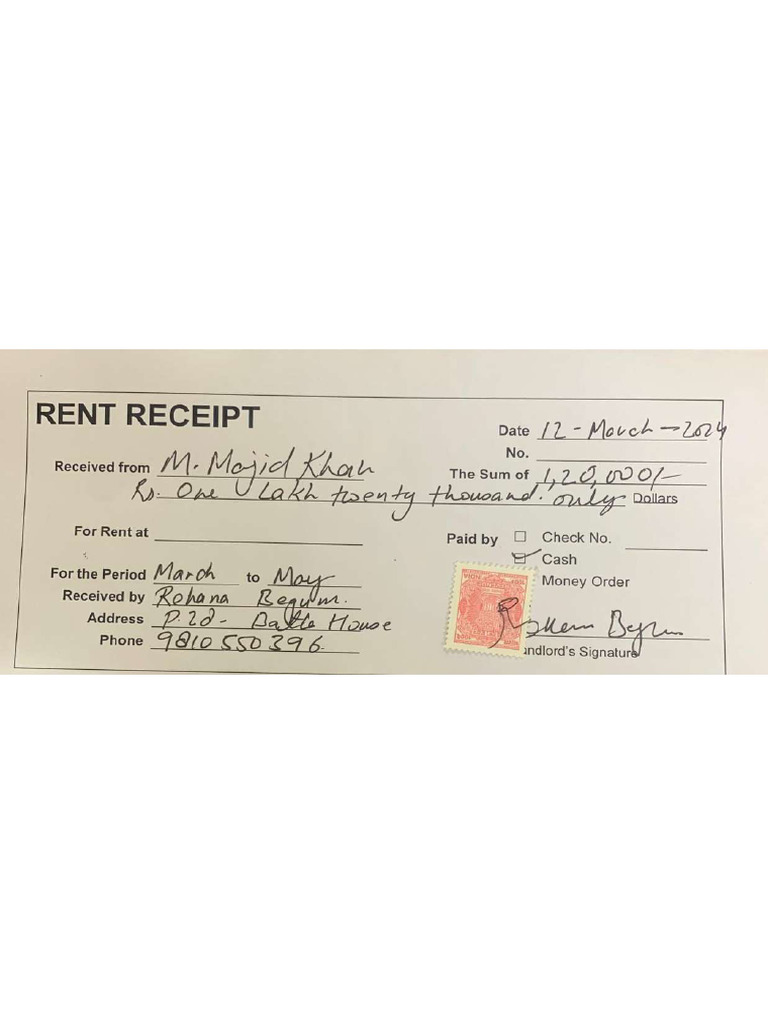 RENT RECEIPT
Date 12-March-2024
No.
Received from M. Majid Khan
The Sum of 1,20,000/-
Rs. One Lakh twenty thousand. only Dollars
For Rent at
Paid by Check No.
Cash
Money Order
For the Period March to May
Received by Rohana Begum.
Address P.2d- Batla House
Phone 9810550396.
Landlord's Signature